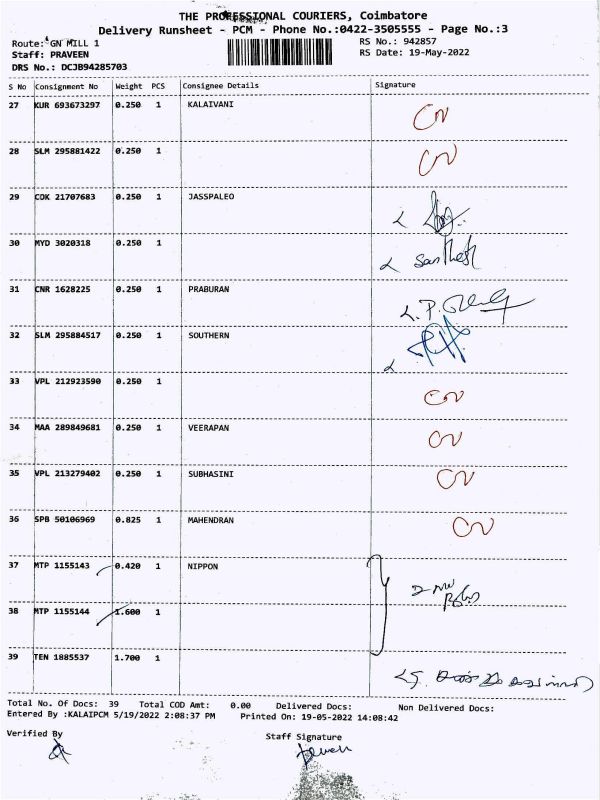 THE PROFESSIONAL COURIERS, Coimbatore
Delivery Runsheet - PCM - Phone No.:0422-3505555 - Page No.:3
Route: GN MILL 1
RS No.: 942857
Staff: PRAVEEN
RS Date: 19-May-2022
DRS No.: DCJB94285703
S No Consignment No Weight PCS Consignee Details Signature
27 KUR 693673297 0.250 1 KALAIVANI
28 SLM 295881422 0.250 1
29 CDK 21707683 0.250 1 JASSPALEO
30 MYD 3020318 0.250 1 Santhosh
31 CNR 1628225 0.250 1 PRABURAN
32 SLM 295884517 0.250 1 SOUTHERN
33 VPL 212923590 0.250 1
34 MAA 289849681 0.250 1 VEERAPAN
35 VPL 213279402 0.250 1 SUBHASINI
36 SPB 50106969 0.825 1 MAHENDRAN
37 MTP 1155143 0.420 1 NIPPON
38 MTP 1155144 1.600 1
39 TEN 1885537 1.700 1
Total No. Of Docs: 39 Total COD Amt: 0.00 Delivered Docs: Non Delivered Docs:
Entered By :KALAIPCM 5/19/2022 2:08:37 PM Printed On: 19-05-2022 14:08:42
Verified By
Staff Signature